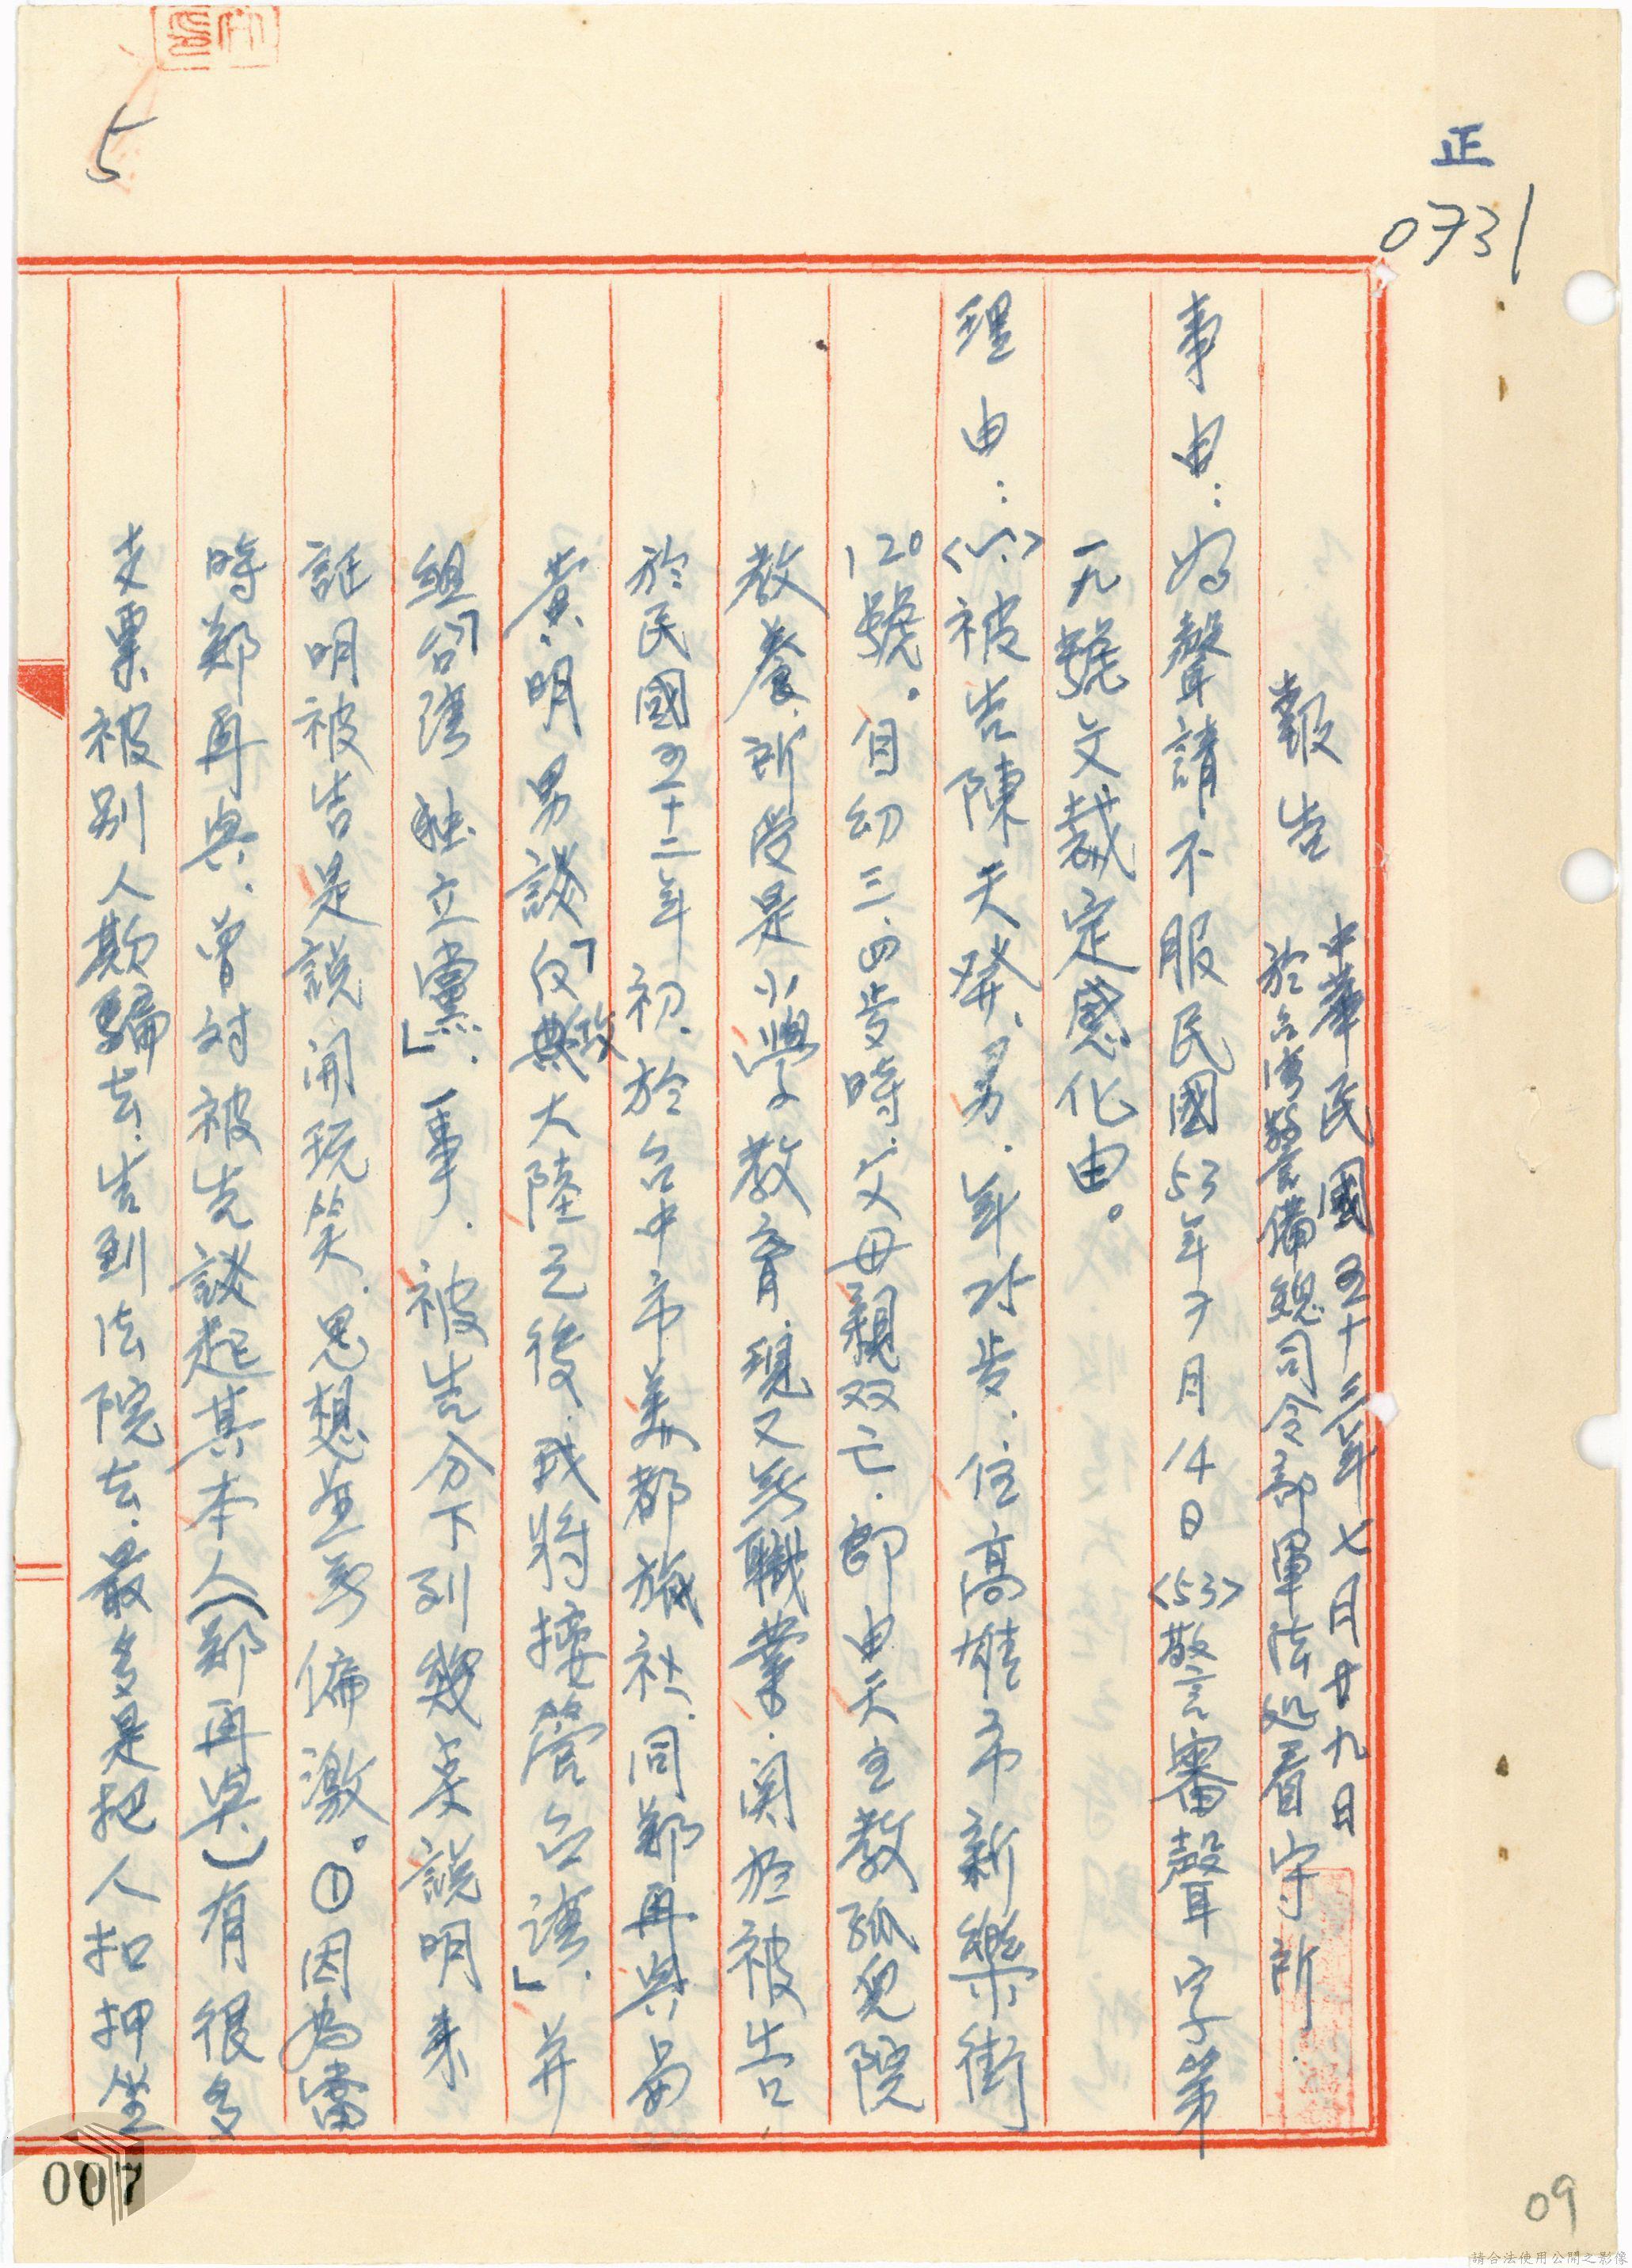 正
0731
5
報告 中華民國五十三年七月廿九日
於台湾警備總司令部軍法処看守所
事由：為聲請不服民國53年7月14日<53>警審聲字第
一九號文裁定感化由。
理由：被告陳天發、男、年25歩、住高雄市新樂街
120號。自幼三、四歩時、父母親双亡、即由天主教孤兒院
教養、所受是小學教育、現又無職業、関於被告
於民國五十二年初、於台中市美都旅社、同鄭再與
黄明男談「反政大陸之後、我將接管台湾」并
組「台湾独立黨」一事、被告分下列幾点說明来
証明被告是說開玩笑、思想並無偏激。①因為當
時鄭再與、曾対被告談起其本人（鄭再與）有很多
支票被別人欺騙去、告到法院去、最多是把人扣押坐
007
09
請合法使用公開之影像